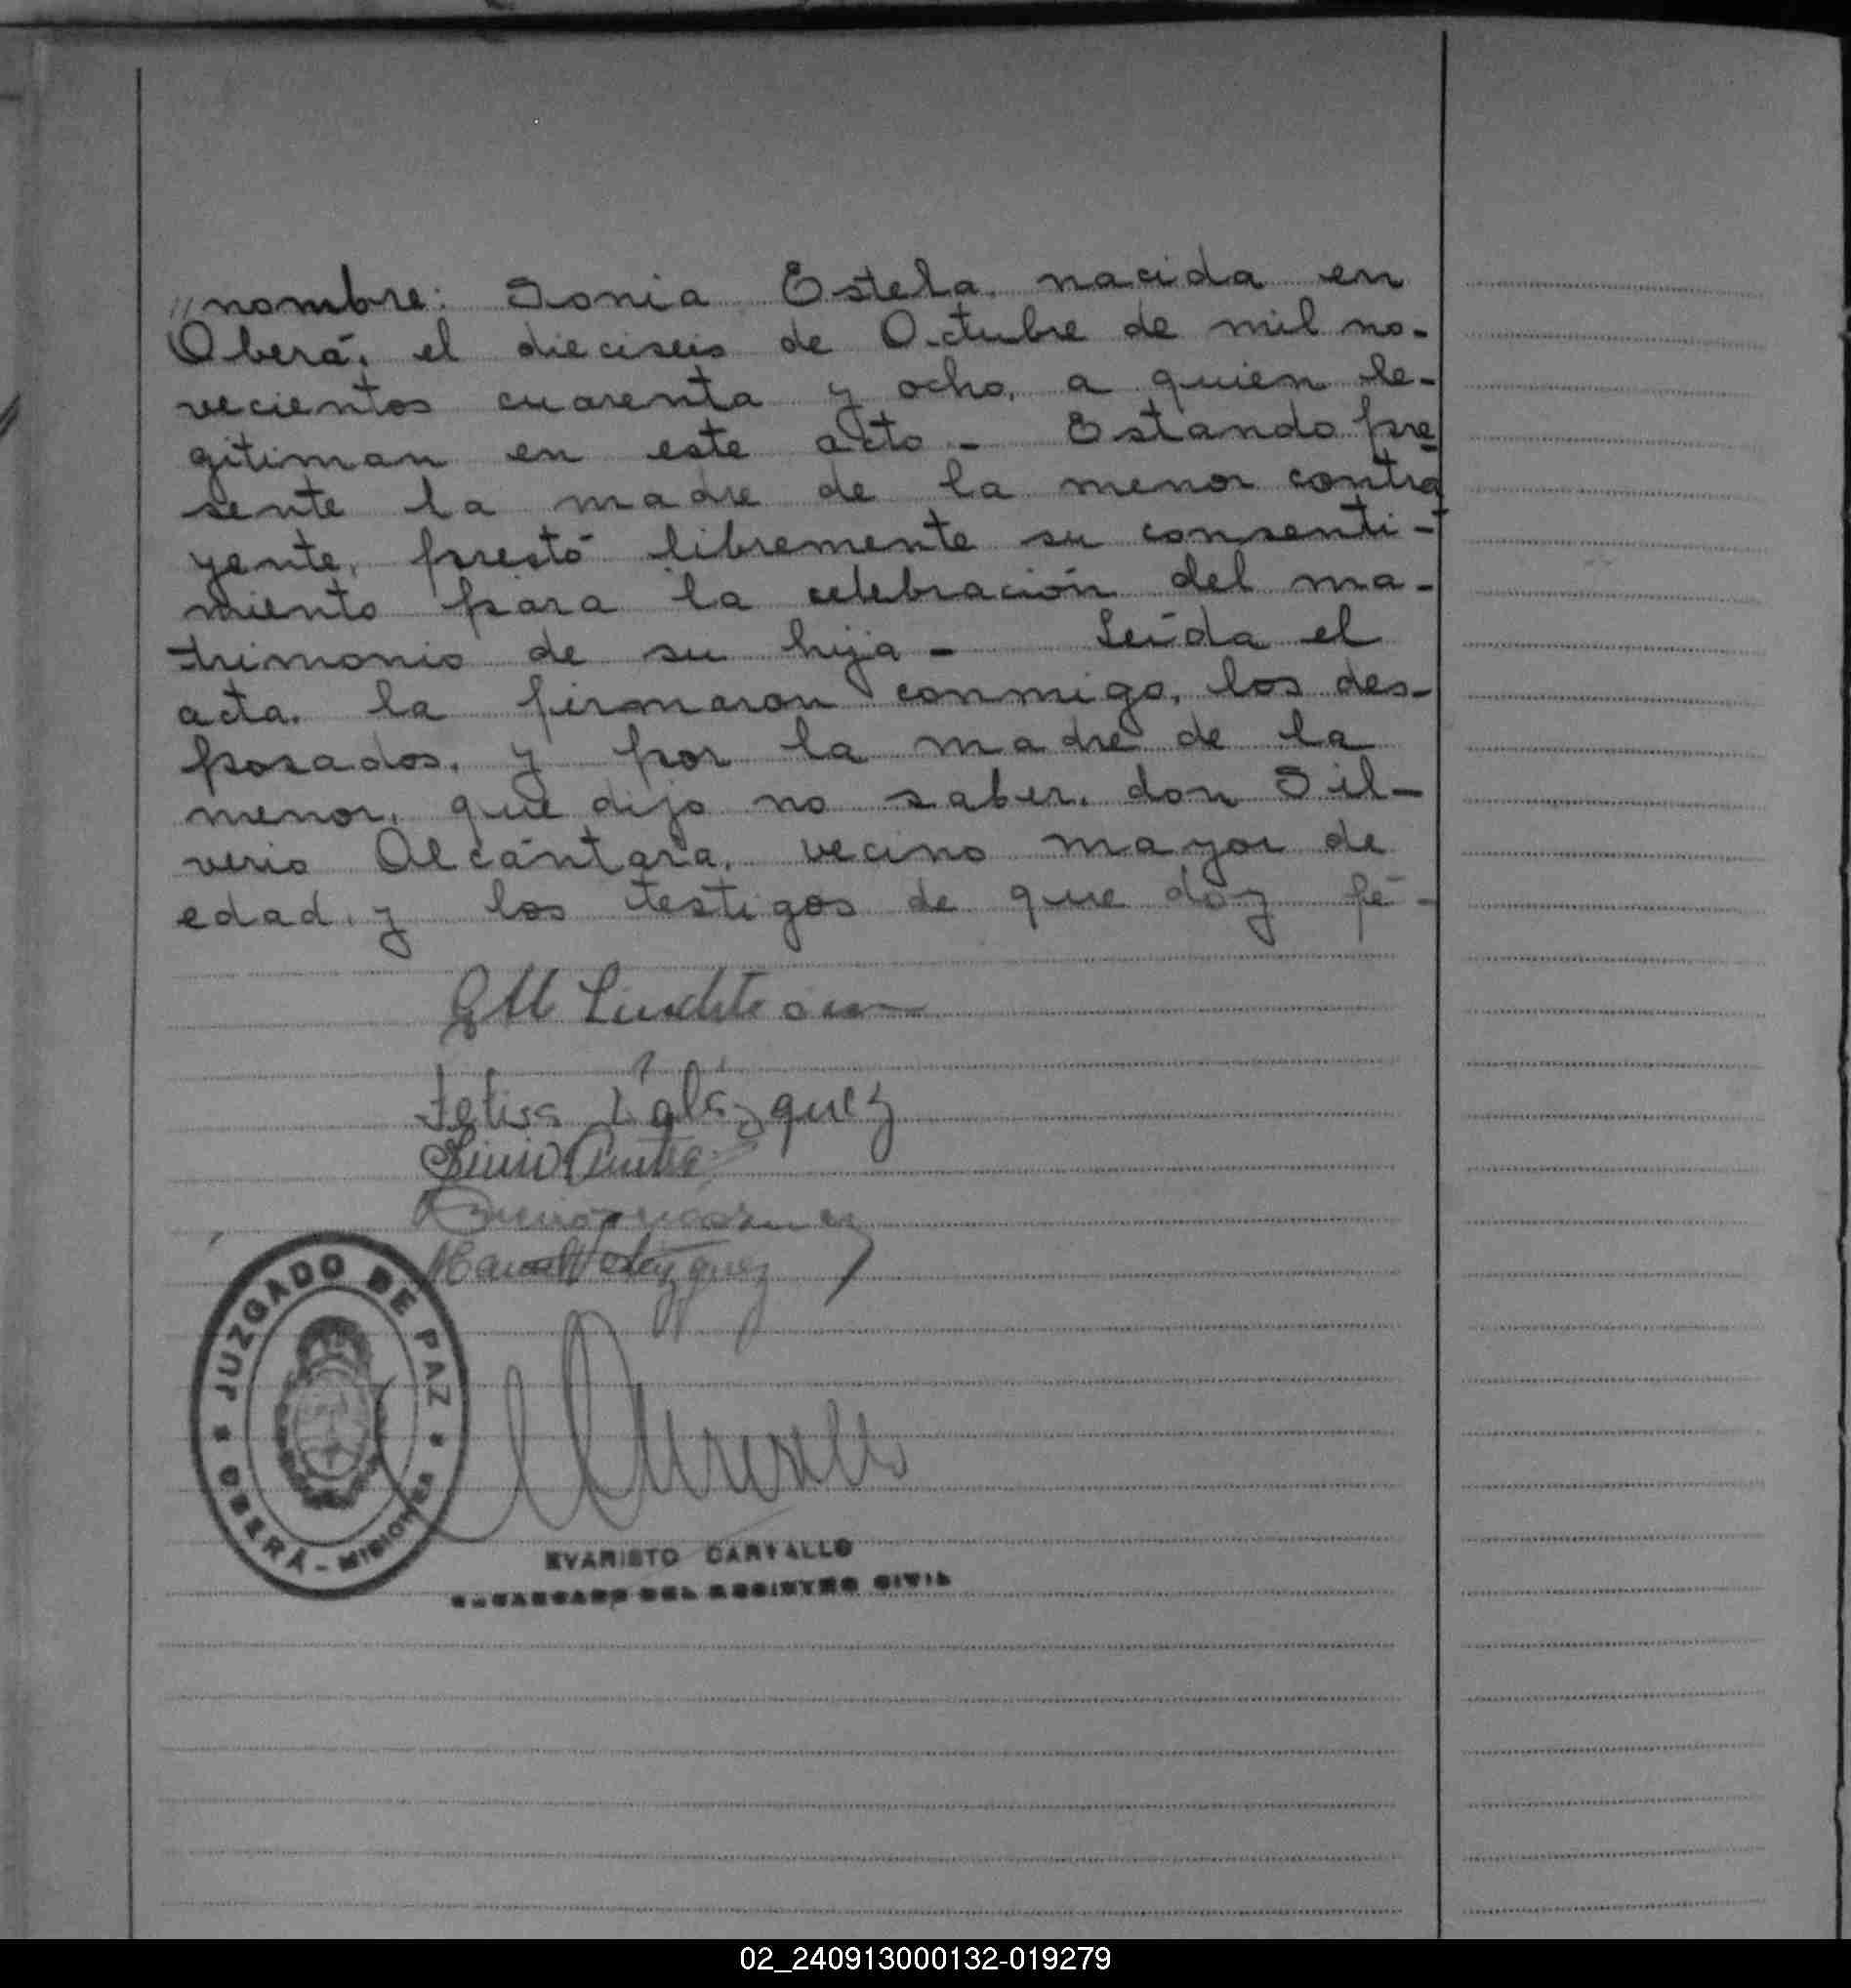 "nombre: Sonia Estela, nacida en
Oberá, el dieciseis de Octubre de mil no-
vecientos cuarenta y ocho, a quien le-
gitiman en este acto - Estando pre
sente la madre de la menor contra
yente, prestó libremente su consenti-
miento para la celebración del ma-
trimonio de su hija - Leída el
acta, la firmaron conmigo, los des-
posados, y por la madre de la
menor, que dijo no saber, don Sil-
verio Alcántara, vecino mayor de
edad, y los testigos de que doy fé-
Velázquez
Velazquez
JUZGADO DE PAZ
OBERÁ - MISIONES
EVARISTO CARVALLO
ENCARGADO DEL REGISTRO CIVIL
02_240913000132-019279